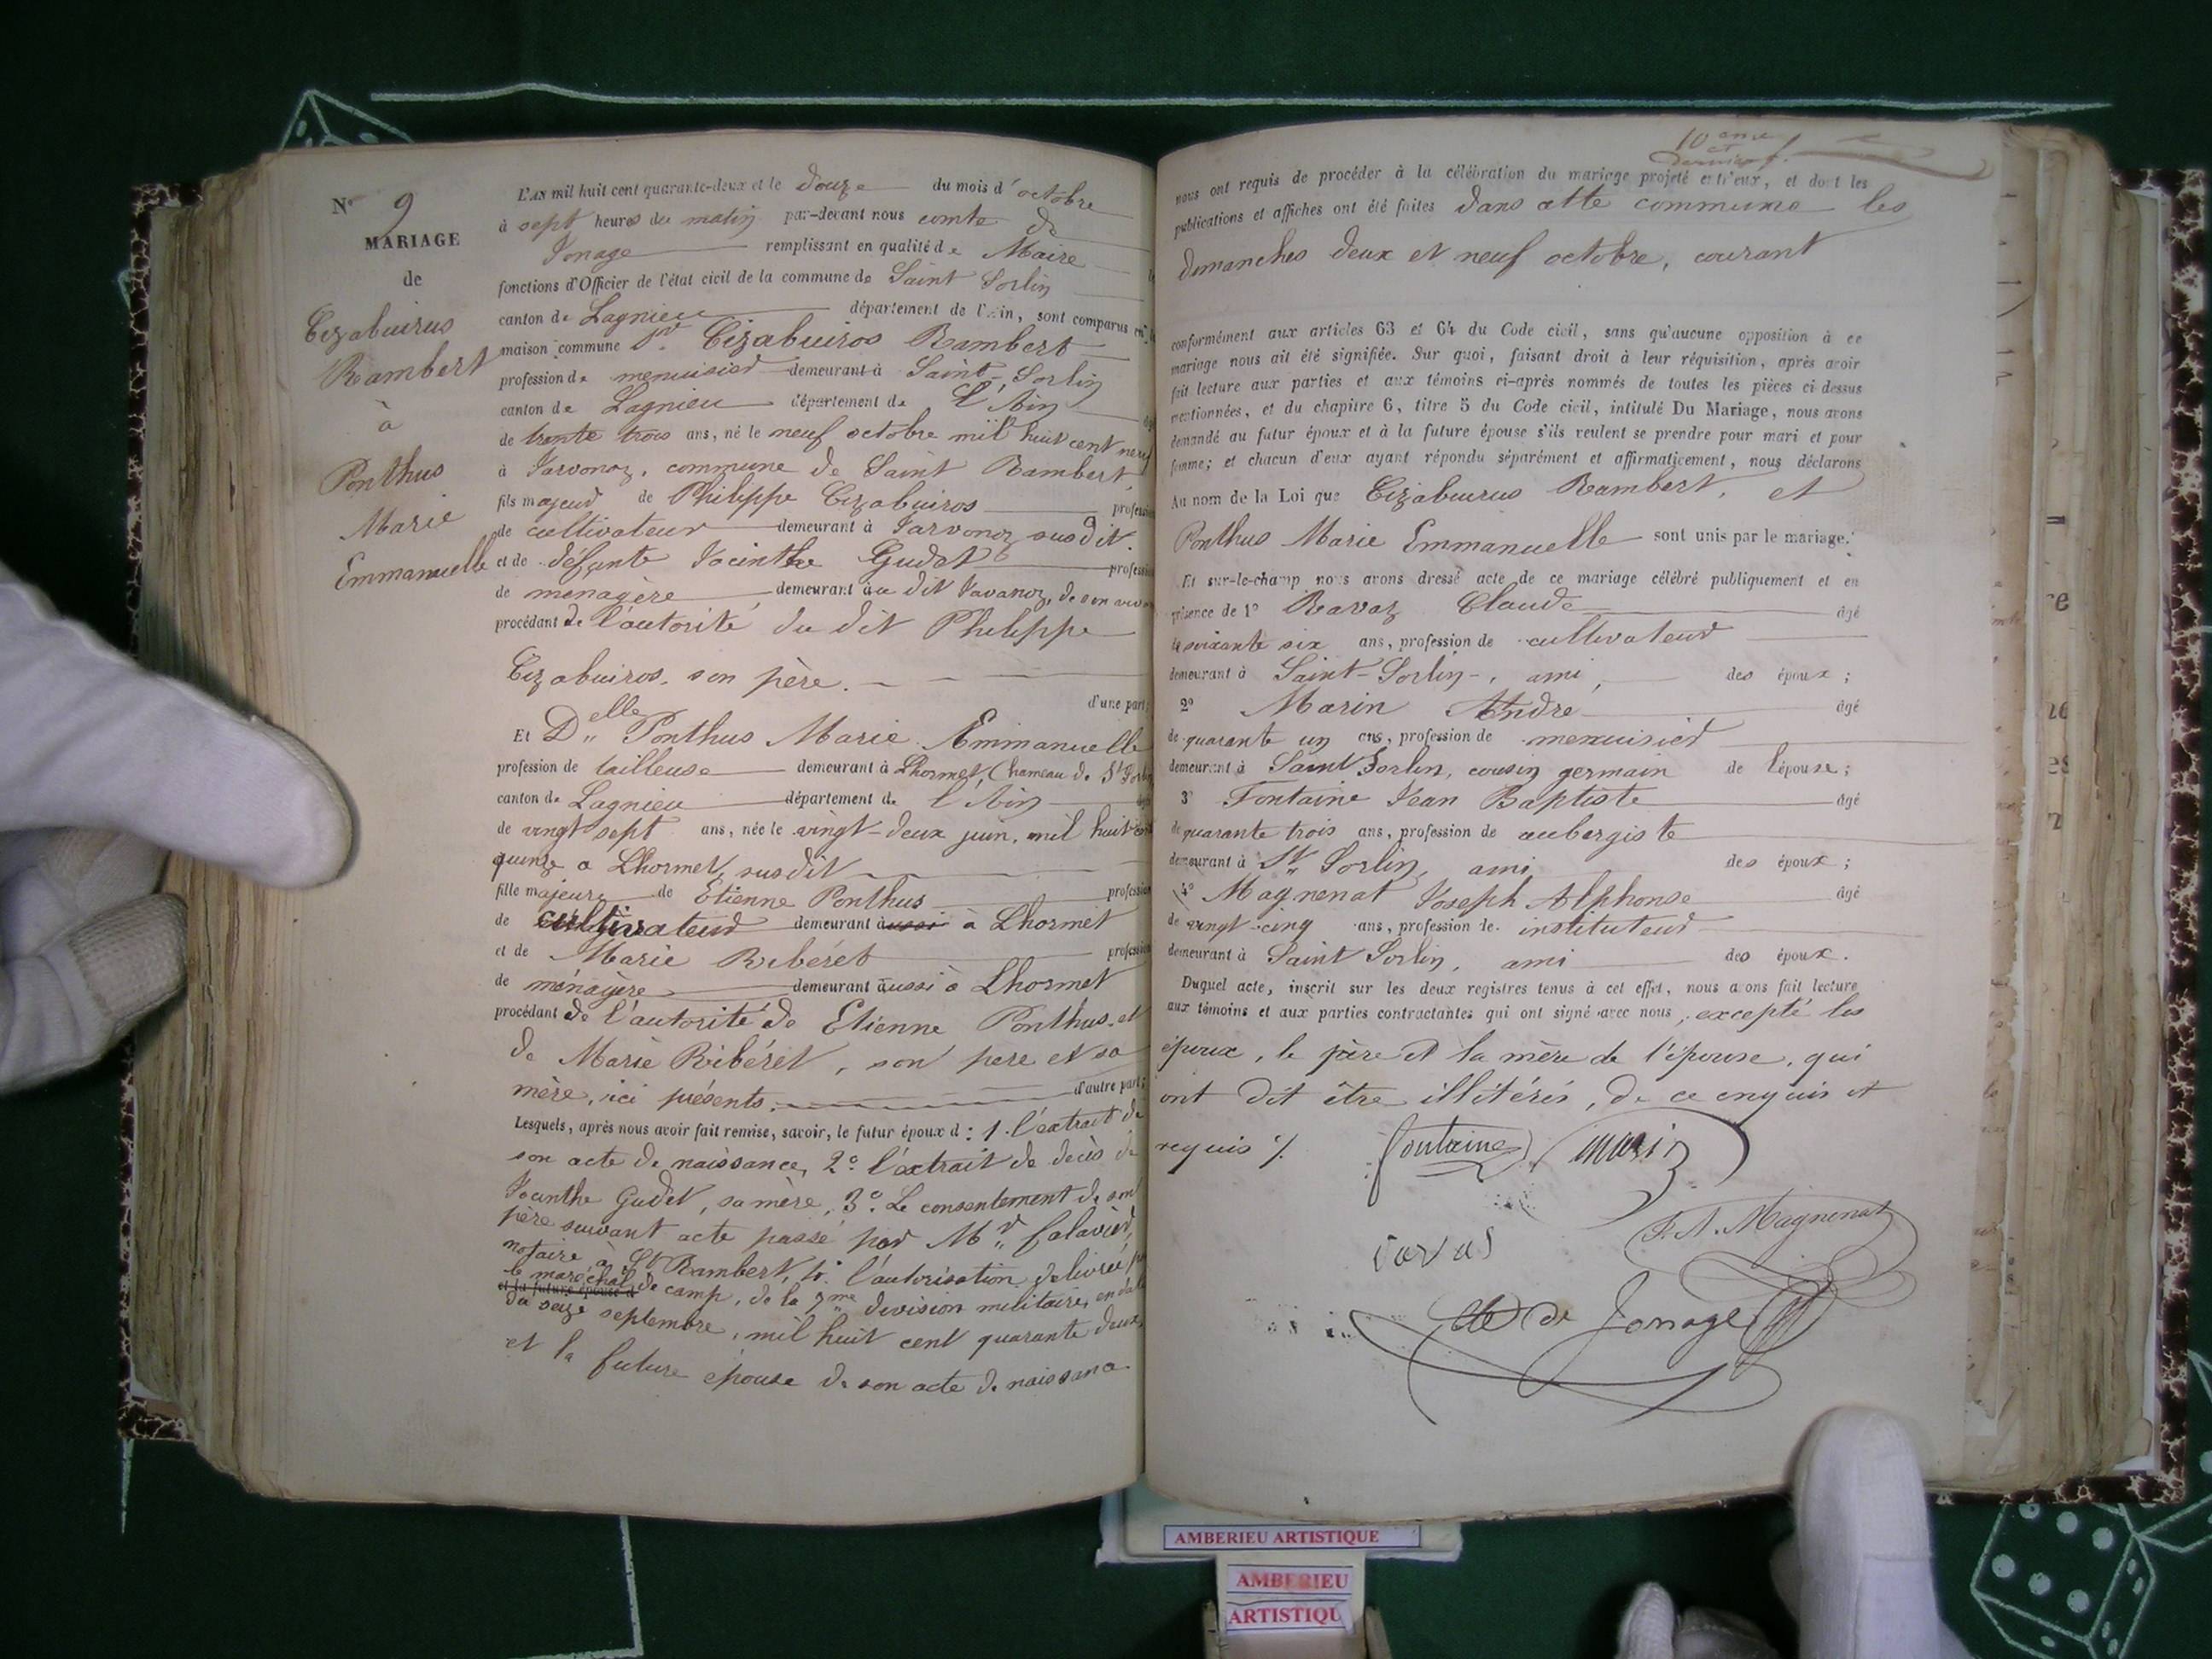 N° 9
MARIAGE
de
Cizabuirus
Rambert
à
Ponthus
Marie
Emmanuelle
L'AN mil huit cent quarante-deux et le douze du mois d'octobre
à sept heures du matin par-devant nous comte de
Jonage remplissant en qualité de Maire
fonctions d'Officier de l'état civil de la commune de Saint Sorlin
canton de Lagnieu département de l'Ain, sont comparus en
maison commune Sr. Cizabuiros Rambert
profession de menuisier demeurant à Saint-Sorlin
canton de Lagnieu département de L'Ain
de trente trois ans, né le neuf octobre mil huit cent neuf
à Javonoz, commune de Saint Rambert,
fils majeur de Philippe Cizabuiros profession
de cultivateur demeurant à Javonoz susdit.
et de défunte Jacinthe Gudet profession
de ménagère demeurant au dit Javanoz, de son
procédant de l'autorité du dit Philippe
Cizabuiros, son père.
d'une part;
Et Delle Ponthus Marie Emmanuelle
profession de tailleuse demeurant à Lhormet, (hameau de St Sorlin
canton de Lagnieu département de l'Ain
de vingt sept ans, née le vingt-deux juin, mil huit cent
quinze a Lhormet, susdit
fille majeure de Etienne Ponthus profession
de cultivateur demeurant aussi à Lhormet
et de Marie Ribéret profession
de ménagère demeurant aussi à Lhormet
procédant de l'autorité de Etienne Ponthus, et
de Marie Ribéret, son père et sa
mère, ici présents. d'autre part;
Lesquels, après nous avoir fait remise, savoir, le futur époux d: 1. l'extrait de
son acte de naissance, 2° l'extrait de decès de
Jacinthe Gudet, sa mère, 3° Le consentement de son
père suivant acte passé par Mr falavier,
notaire à St Rambert, l'autorisation délivrée
le maréchal de camp, de la 7me division militaire, en
et la future épouse d
du seize septembre, mil huit cent quarante deux,
et la future épouse de son acte de naissance
10eme
et
dernier f.
nous ont requis de procéder à la célébration du mariage projeté entr'eux, et dont les
publications et affiches ont été faites dans cette commune les
dimanches deux et neuf octobre, courant
conformément aux articles 63 et 64 du Code civil, sans qu'aucune opposition à ce
mariage nous ait été signifiée. Sur quoi, faisant droit à leur réquisition, après avoir
fait lecture aux parties et aux témoins ci-après nommés de toutes les pièces ci dessus
mentionnées, et du chapitre 6, titre 5 du Code civil, intitulé Du Mariage, nous avons
demandé au futur époux et à la future épouse s'ils veulent se prendre pour mari et pour
femme; et chacun d'eux ayant répondu séparément et affirmativement, nous déclarons
Au nom de la Loi que Cizabuirus Rambert, et
Ponthus Marie Emmanuelle sont unis par le mariage.
Et sur-le-champ nous avons dressé acte de ce mariage célébré publiquement et en
présence de 1° Ravaz Claude âgé
de soixante six ans, profession de cultivateur
demeurant à Saint-Sorlin, ami, des époux;
2° Marin André âgé
de quarante un ans, profession de menuisier
demeurant à Saint Sorlin, cousin germain de l'épouse;
3° Fontaine Jean Baptiste âgé
de quarante trois ans, profession de aubergiste
demeurant à St Sorlin, ami des époux;
4° Magnenat Joseph Alphonse âgé
de vingt cinq ans, profession de instituteur
demeurant à Saint Sorlin, ami des époux.
Duquel acte, inscrit sur les deux registres tenus à cet effet, nous avons fait lecture
aux témoins et aux parties contractantes qui ont signé avec nous, excepté les
époux, le père et la mère de l'épouse, qui
ont dit être illitérés, de ce enquis et
requis /.
fontaine marin
J. A. Magnenat
ravas
de Jonage
AMBERIEU ARTISTIQUE
AMBERIEU
ARTISTIQU